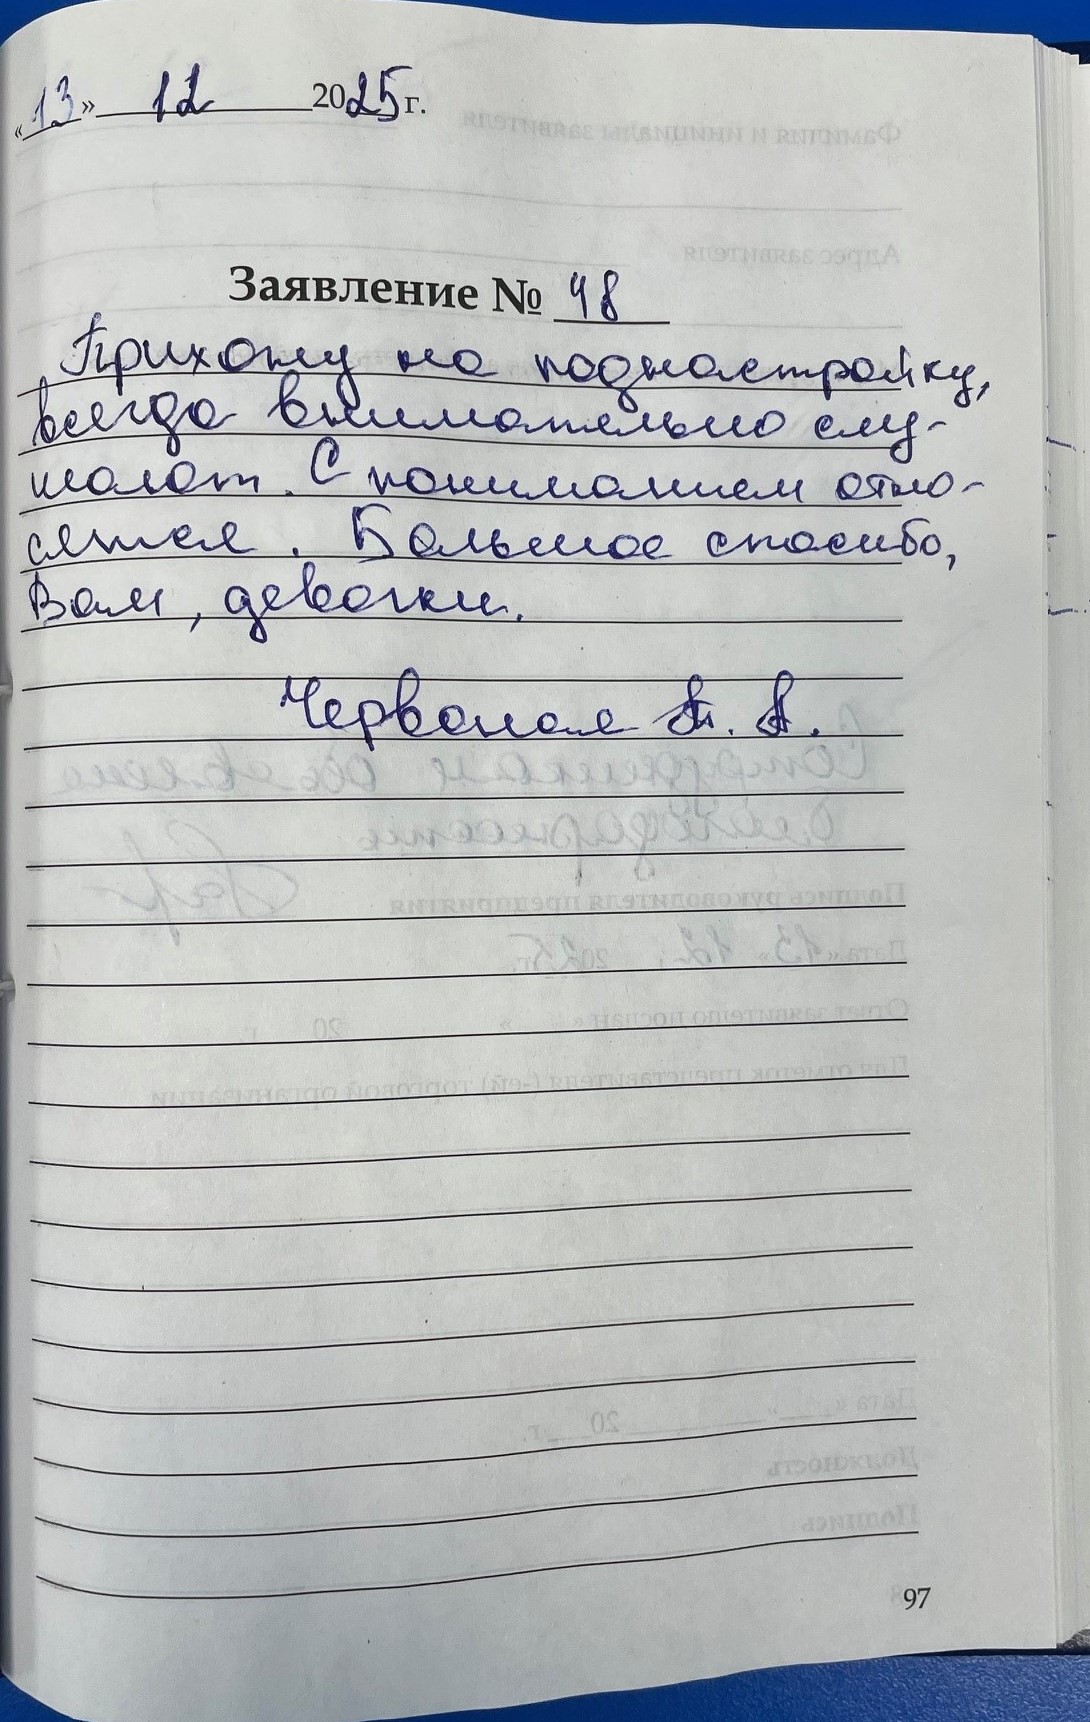 «13» 12 2025 г.
Заявление № 48
Прихожу на поднастройку,
всегда внимательно слу-
шают. С пониманием отно-
сятся. Большое спасибо,
Вам, девочки.
Червоная Т. А.
97